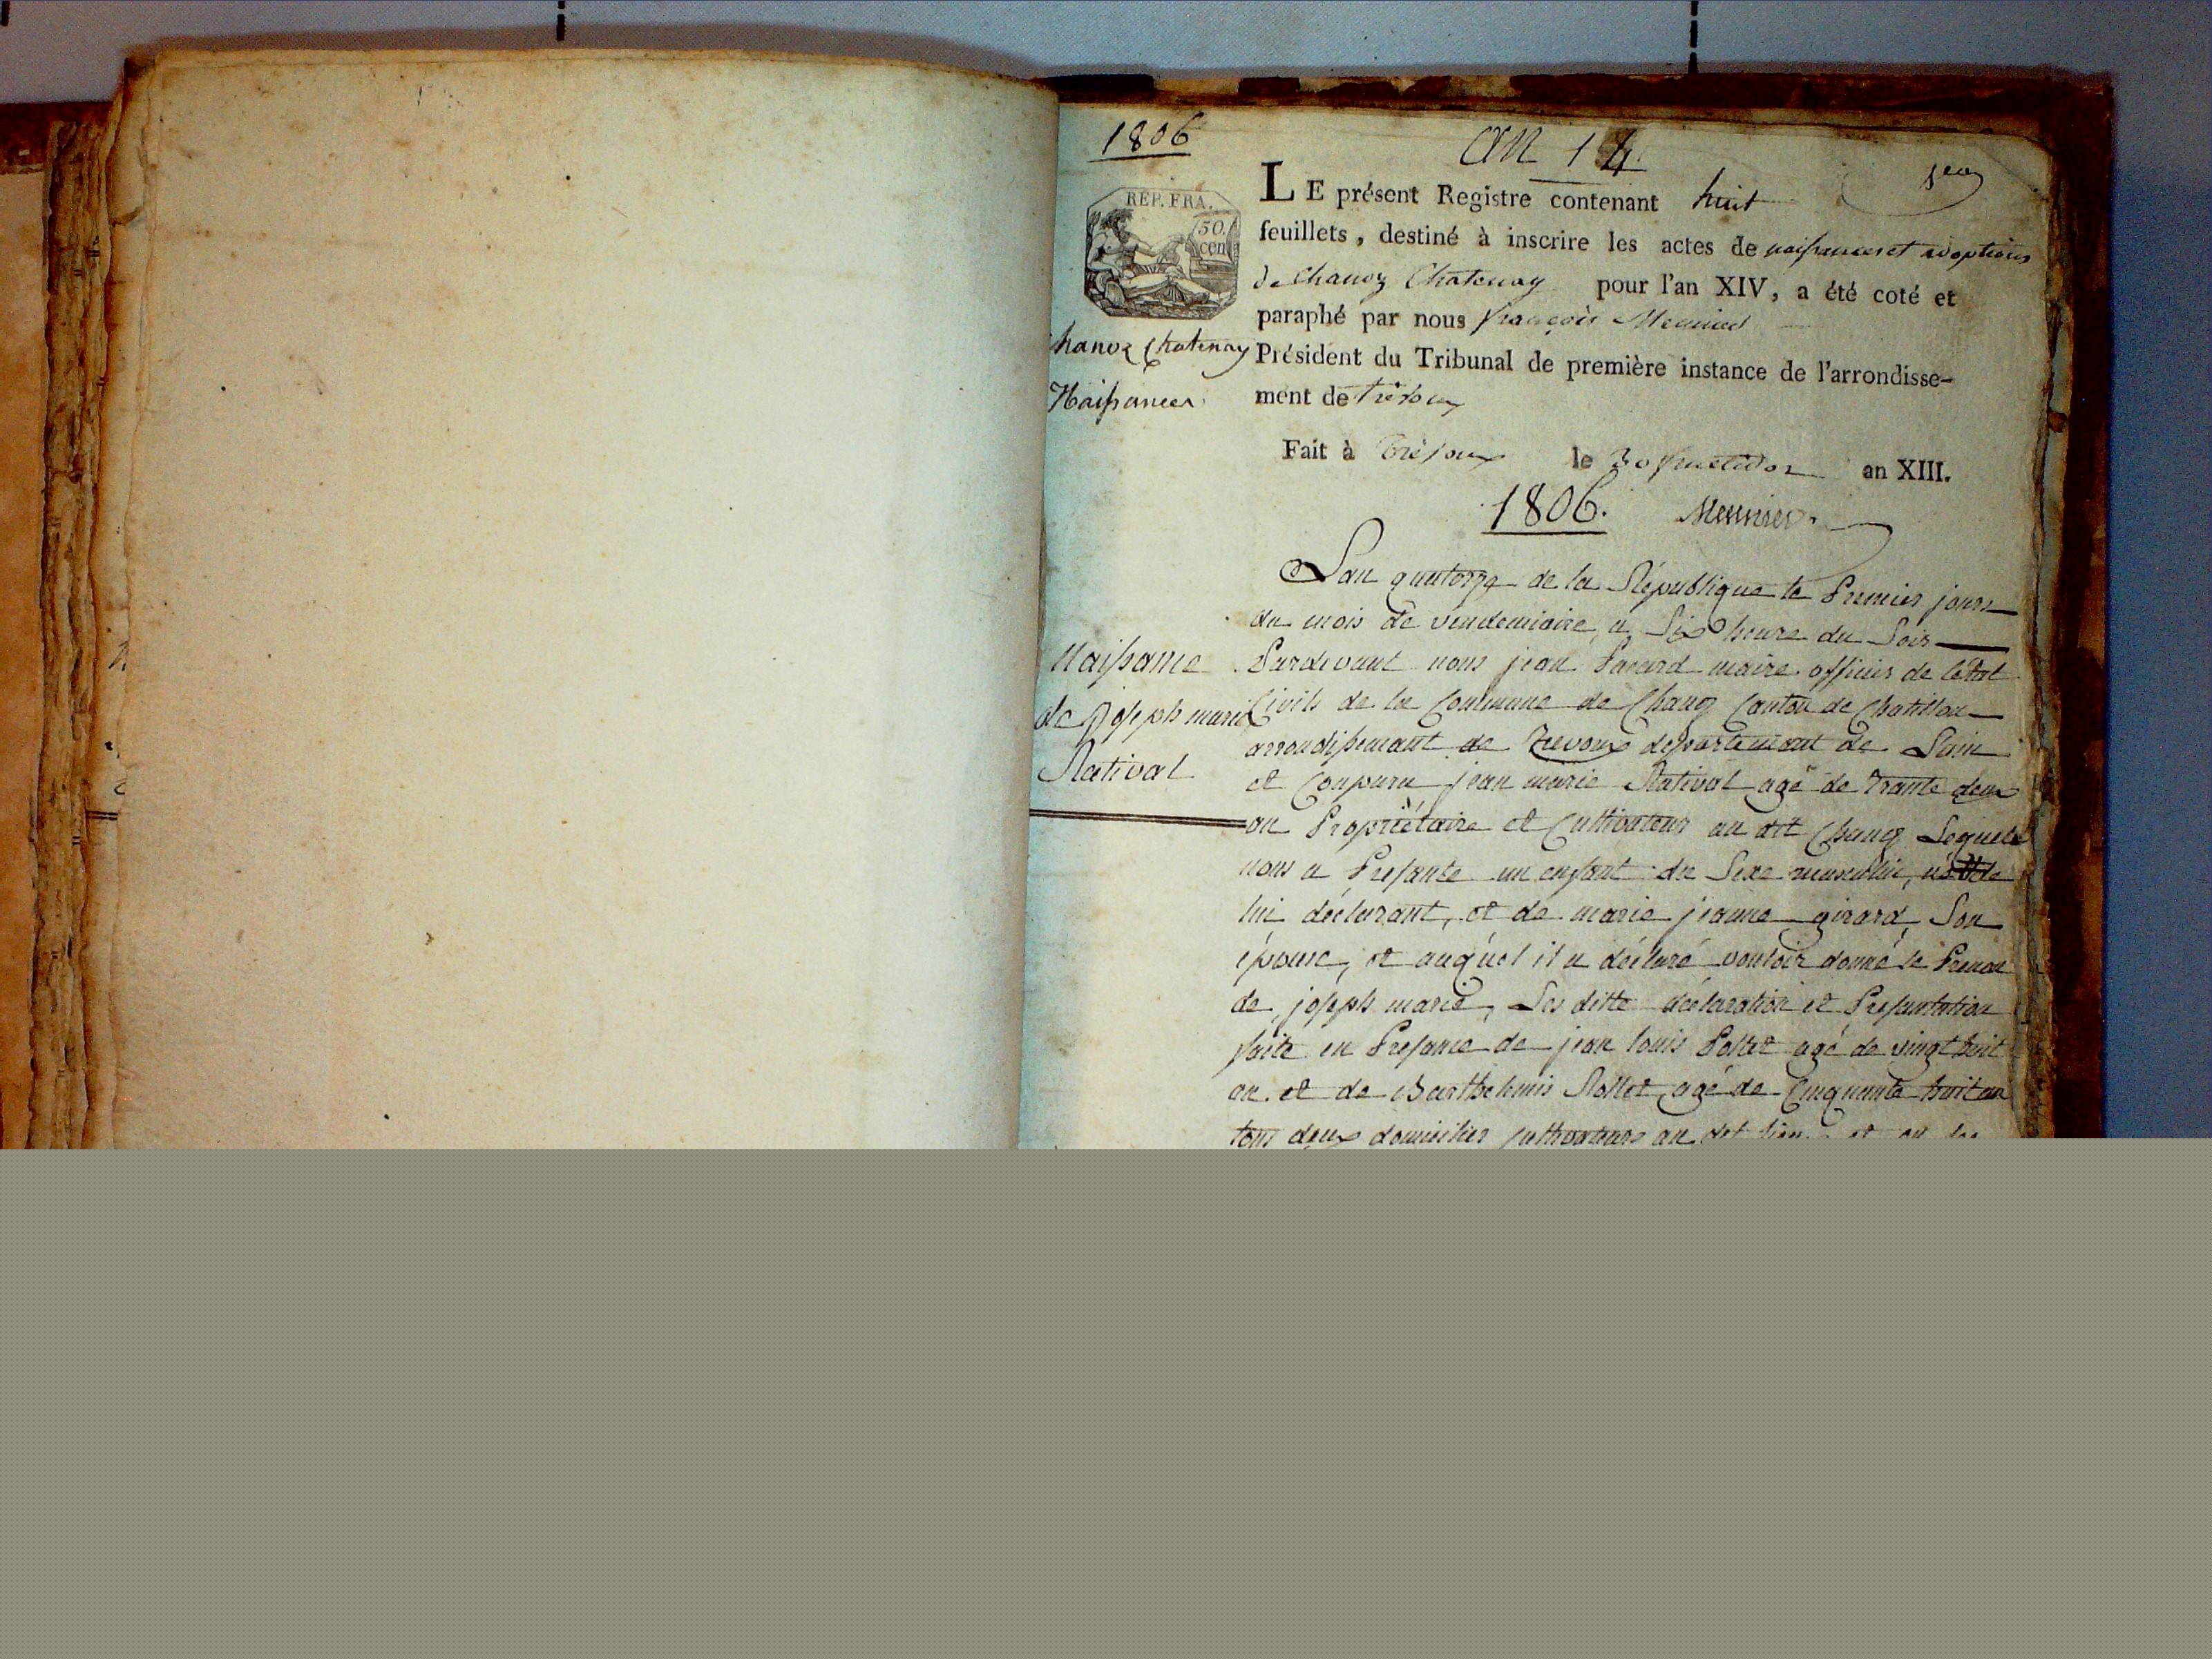 1806
an 14
REP. FRA.
50.
cen
LE présent Registre contenant huit
feuillets, destiné à inscrire les actes de naissances et adoptions
de Chanoz Chatenay pour l'an XIV, a été coté et
paraphé par nous françois Meunier
Président du Tribunal de première instance de l'arrondisse-
ment de Trévoux
Fait à Trévoux le 30 fructidor an XIII.
1806. Meunier
hanoz Chatenay
Naissances
Lan quatorze de la République le Premier jours
du mois de vendemiaire, a Six heure du Soir
Pardevant nous jean Pacard maire officier de létat
Civils de la Commune de Chanoz Canton de Chatillon
arrondissemant de Trevoux departemant de Lain
et Conparu jean marie Rativat agé de trante deux
an Propriétaire et Cultivateur au dit Chanoz Lequels
nous a Presante un enfant du Sexe masculin, né de
lui déclarant, et de marie jeanne girard, Son
épouse, et auquel il a déclaré vouloir donné le Prenon
de joseph marie, Les ditte déclaration et Presantation
faite en Presance de jean louis agé de vingt huit
an et de Barthelemis agé de Cinquante huit an
tous deux domicilier Cultivateurs au dit lieu
Naissance
de Joseph marie
Rativat